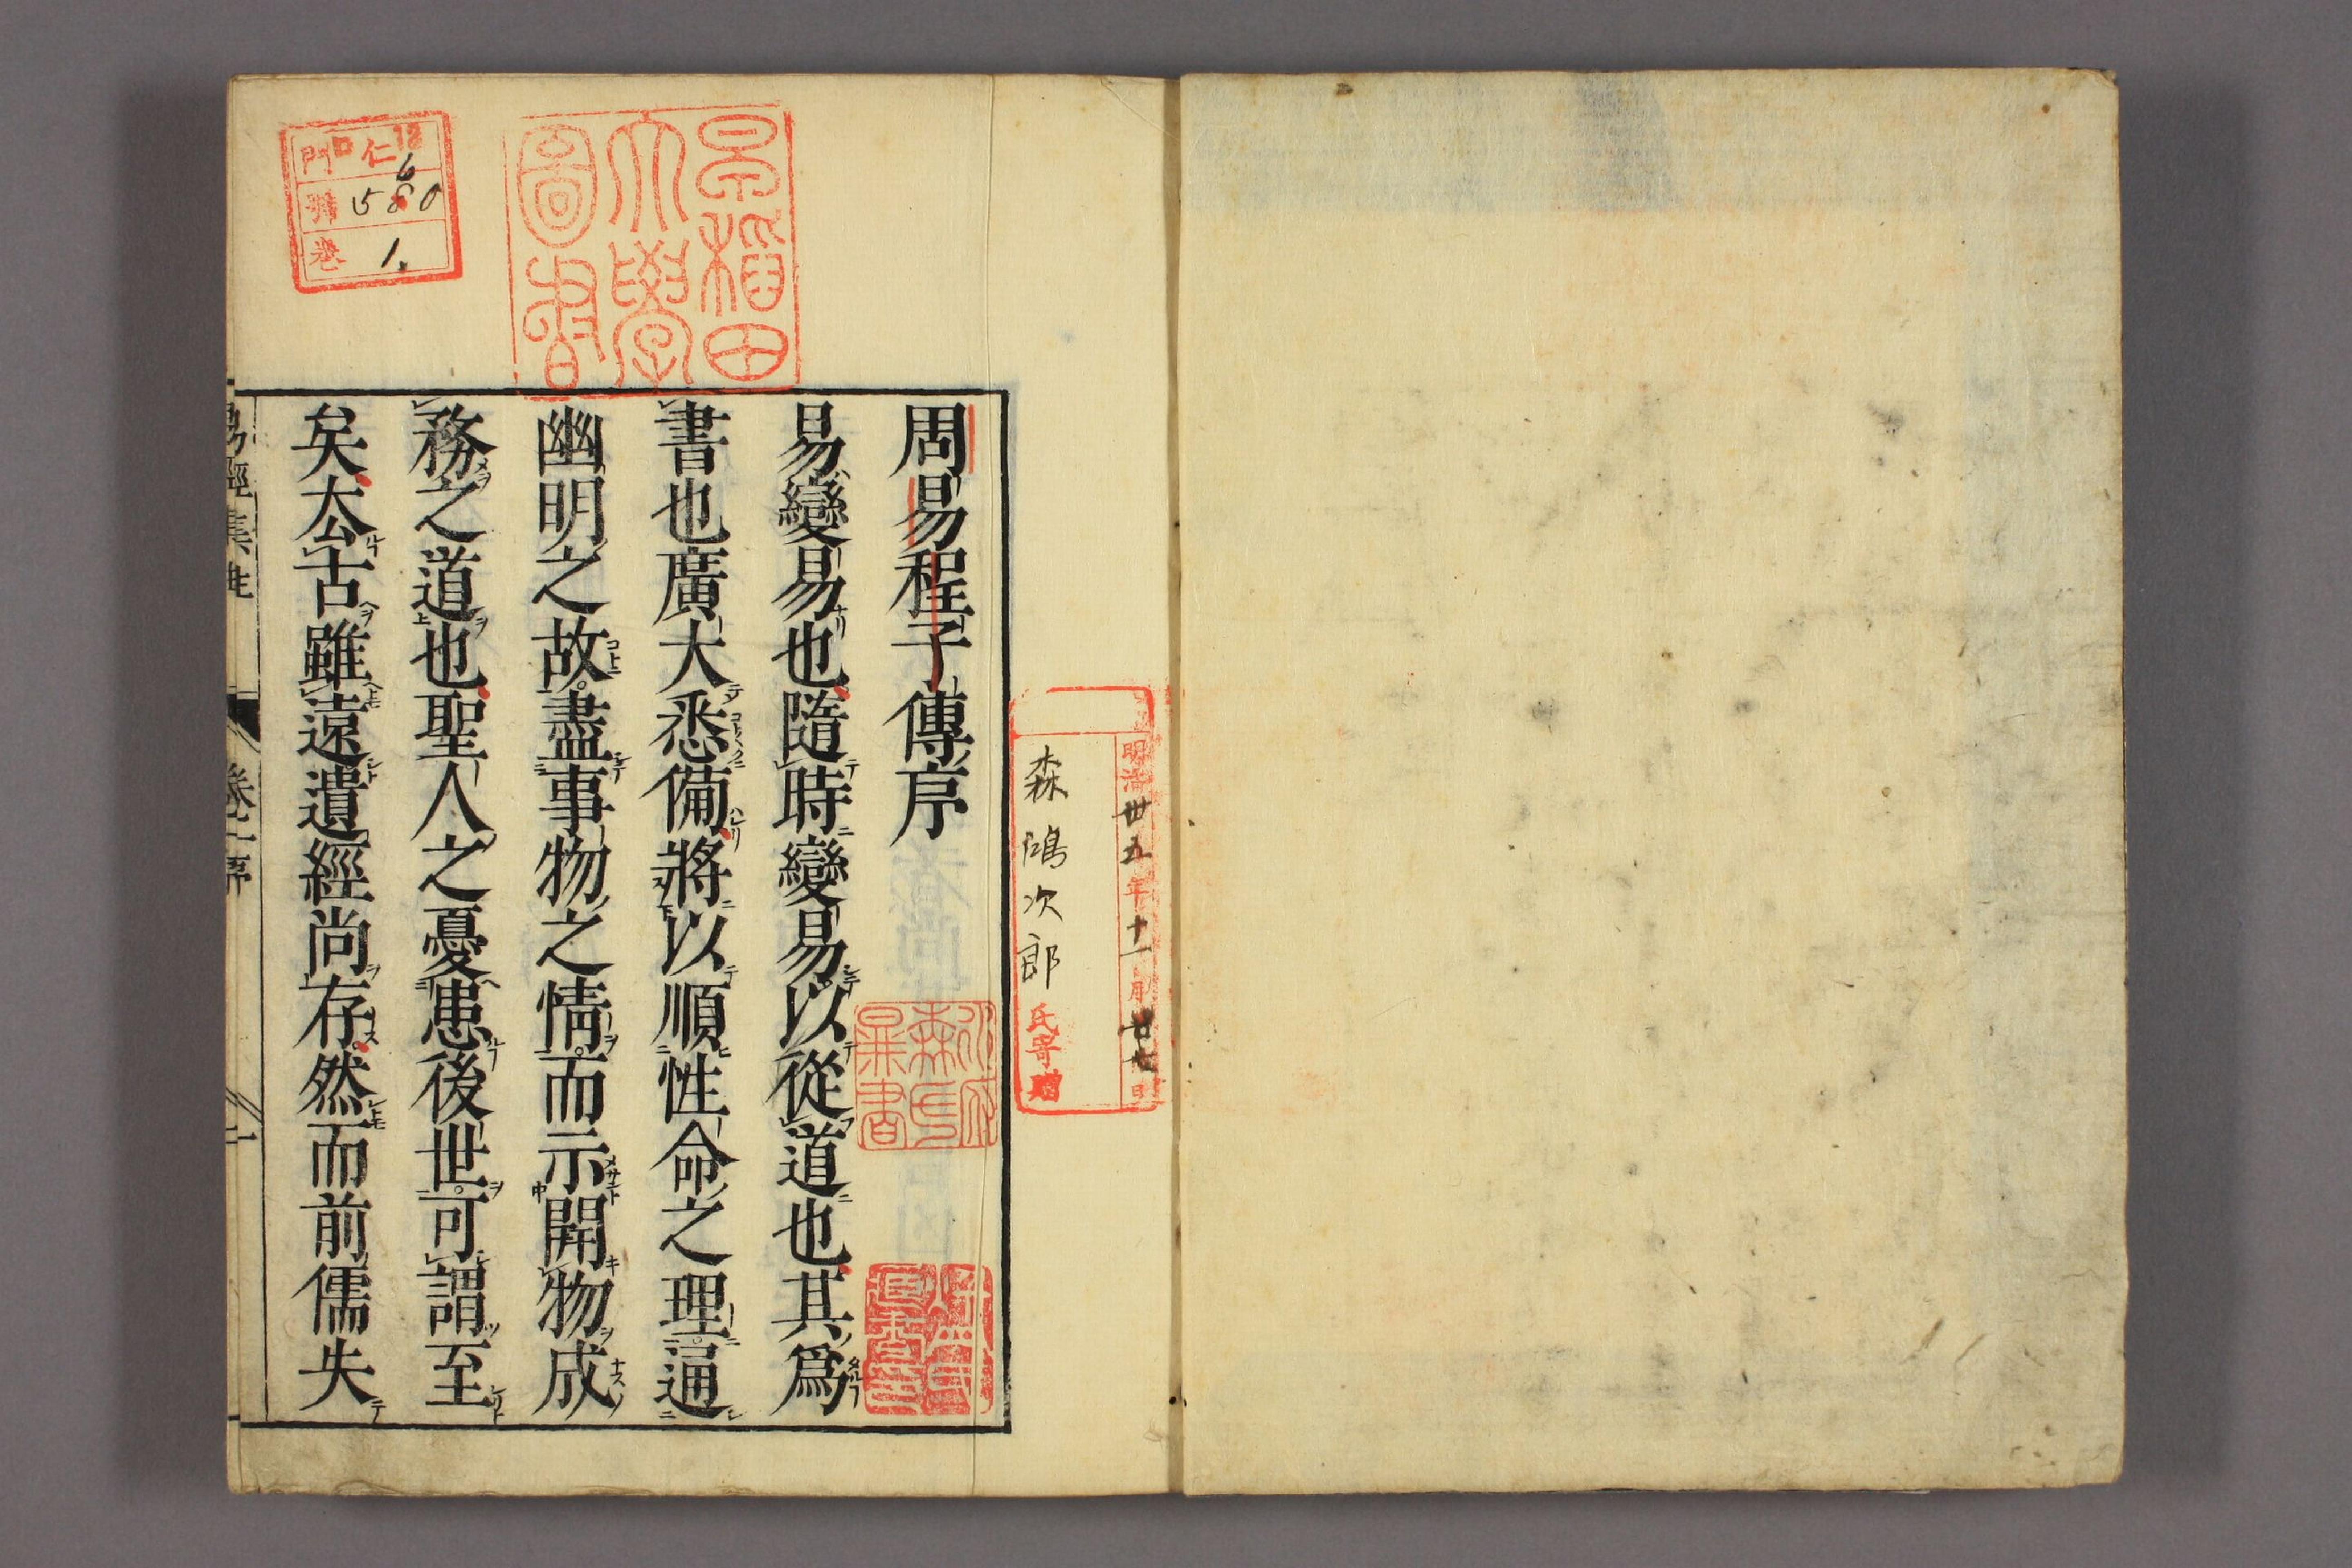 明治卅五年十一月廿七日
森鴻次郎氏寄贈
周易程子傳序
易變易也隨時變易以從道也其爲
書也廣大悉備將以順性命之理通
幽明之故盡事物之情而示開物成
務之道也聖人之憂患後世可謂至
矣去古雖遠遺經尚存然而前儒失
早稻田
大學
圖書
門 ロ仁 12
號 5680
卷 1.